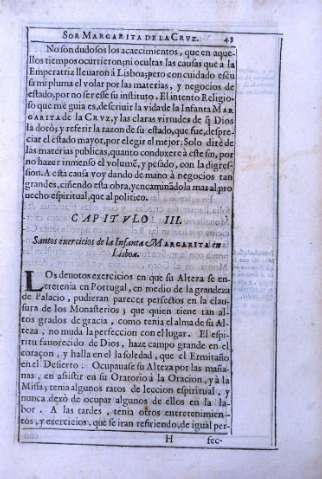 SOR MARGARITA DE LA CRVZ. 43
No son dudosos los acaecimientos, que en aque-
llos tiempos ocurrieron, ni ocultas las causas que a la
Emperatriz lleuaron á Lisboa; pero con cuidado escu
sa mi pluma el volar por las materias, y negocios de
estado, por no ser esse su instituto. El intento Religio-
so que me guia es, descriuir la vida de la Infanta MAR-
GARITA de la CRVZ, y las claras virtudes de q̃ Dios
la dotò; y referir la razon de su estado, que fue, despre-
ciar el estado mayor, por elegir el mejor: Solo dirè de
las materias publicas, quanto conduxere à este fin, por
no hazer inmenso el volumẽ, y pesado, con la digres-
sion. A esta causa voy dando de mano à negocios tan
grandes, ciñendo esta obra, y encaminãdo la mas al pro
uecho espiritual, que al politico.
CAPITVLO III.
Santos exercicios de la Infanta MARGARITA en
Lisboa.
LOs deuotos exercicios en que su Alteza se en-
tretenia en Portugal, en medio de la grandeza
de Palacio, pudieran parecer perfectos en la clau-
sura de los Monasterios; que quien tiene tan
altos grados de gracia, como tenia el alma de su Al-
teza, no muda la perfeccion con el lugar. El espi-
ritu fauorecido de Dios, haze campo grande en el
coraçon, y halla en el la soledad, que el Ermitaño
en el Desierto. Ocupauase su Alteza por las maña-
nas, en assistir en su Oratorio à la Oracion, y à la
Missa, tenia algunos ratos de leccion espiritual, y
nunca dexò de ocupar algunos de ellos en la la-
bor. A las tardes, tenia otros entretenimien-
tos, y exercicios, que se iran refiriendo, de igual per-
H fec-